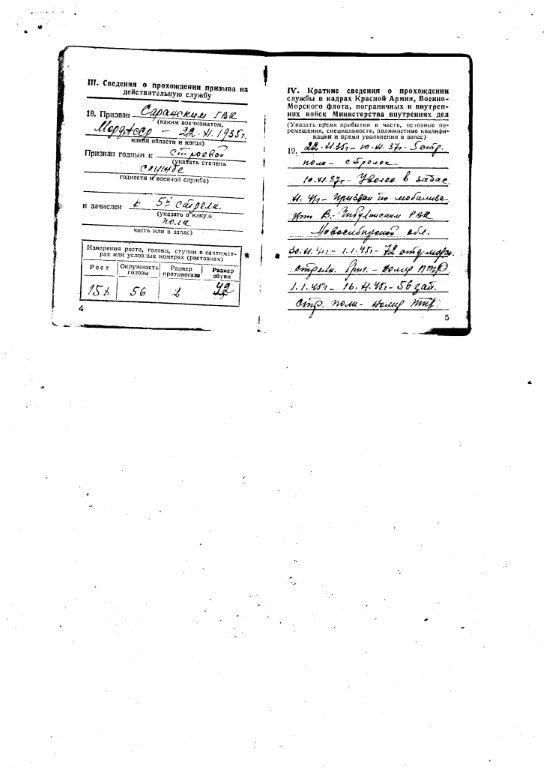 III. Сведения о прохождении призыва на
действительную службу
18. Призван Саранским ГВК
(каким военкоматом,
Мордавер - 22.XI.1935г.
какой области и когда)
Признан годным к строевой
(указать степень
службе
годности к военной службе)
и зачислен в 5й стрелк.
(указать в какую
полк
часть или в запас)
Измерения роста, головы, ступни в сантимет-
рах или условных номерах (ростовках)
Рост Окружность головы Размер противогаза Размер обуви
56 2 42
4
IV. Краткие сведения о прохождении
службы в кадрах Красной Армии, Военно-
Морского флота, пограничных и внутрен-
них войск Министерства внутренних дел
(Указать время прибытия в часть, основные пе-
ремещения, специальность, должностные квалифи-
кации и время увольнения в запас)
19. 22.XI.35г - 10.XI.37г - 5 стр.
полк - стрелок
10.XI.37г - Уволен в запас
XI.41г - призван по мобилиза
РВК
Новосибирской обл.
30.XI.41г - 1.1.45г - 72 отд. морс.
стрелк. бриг. - номер птр
1.1.45г - 16.XI.45г - 56 зап.
стр. полк - номер птр
5